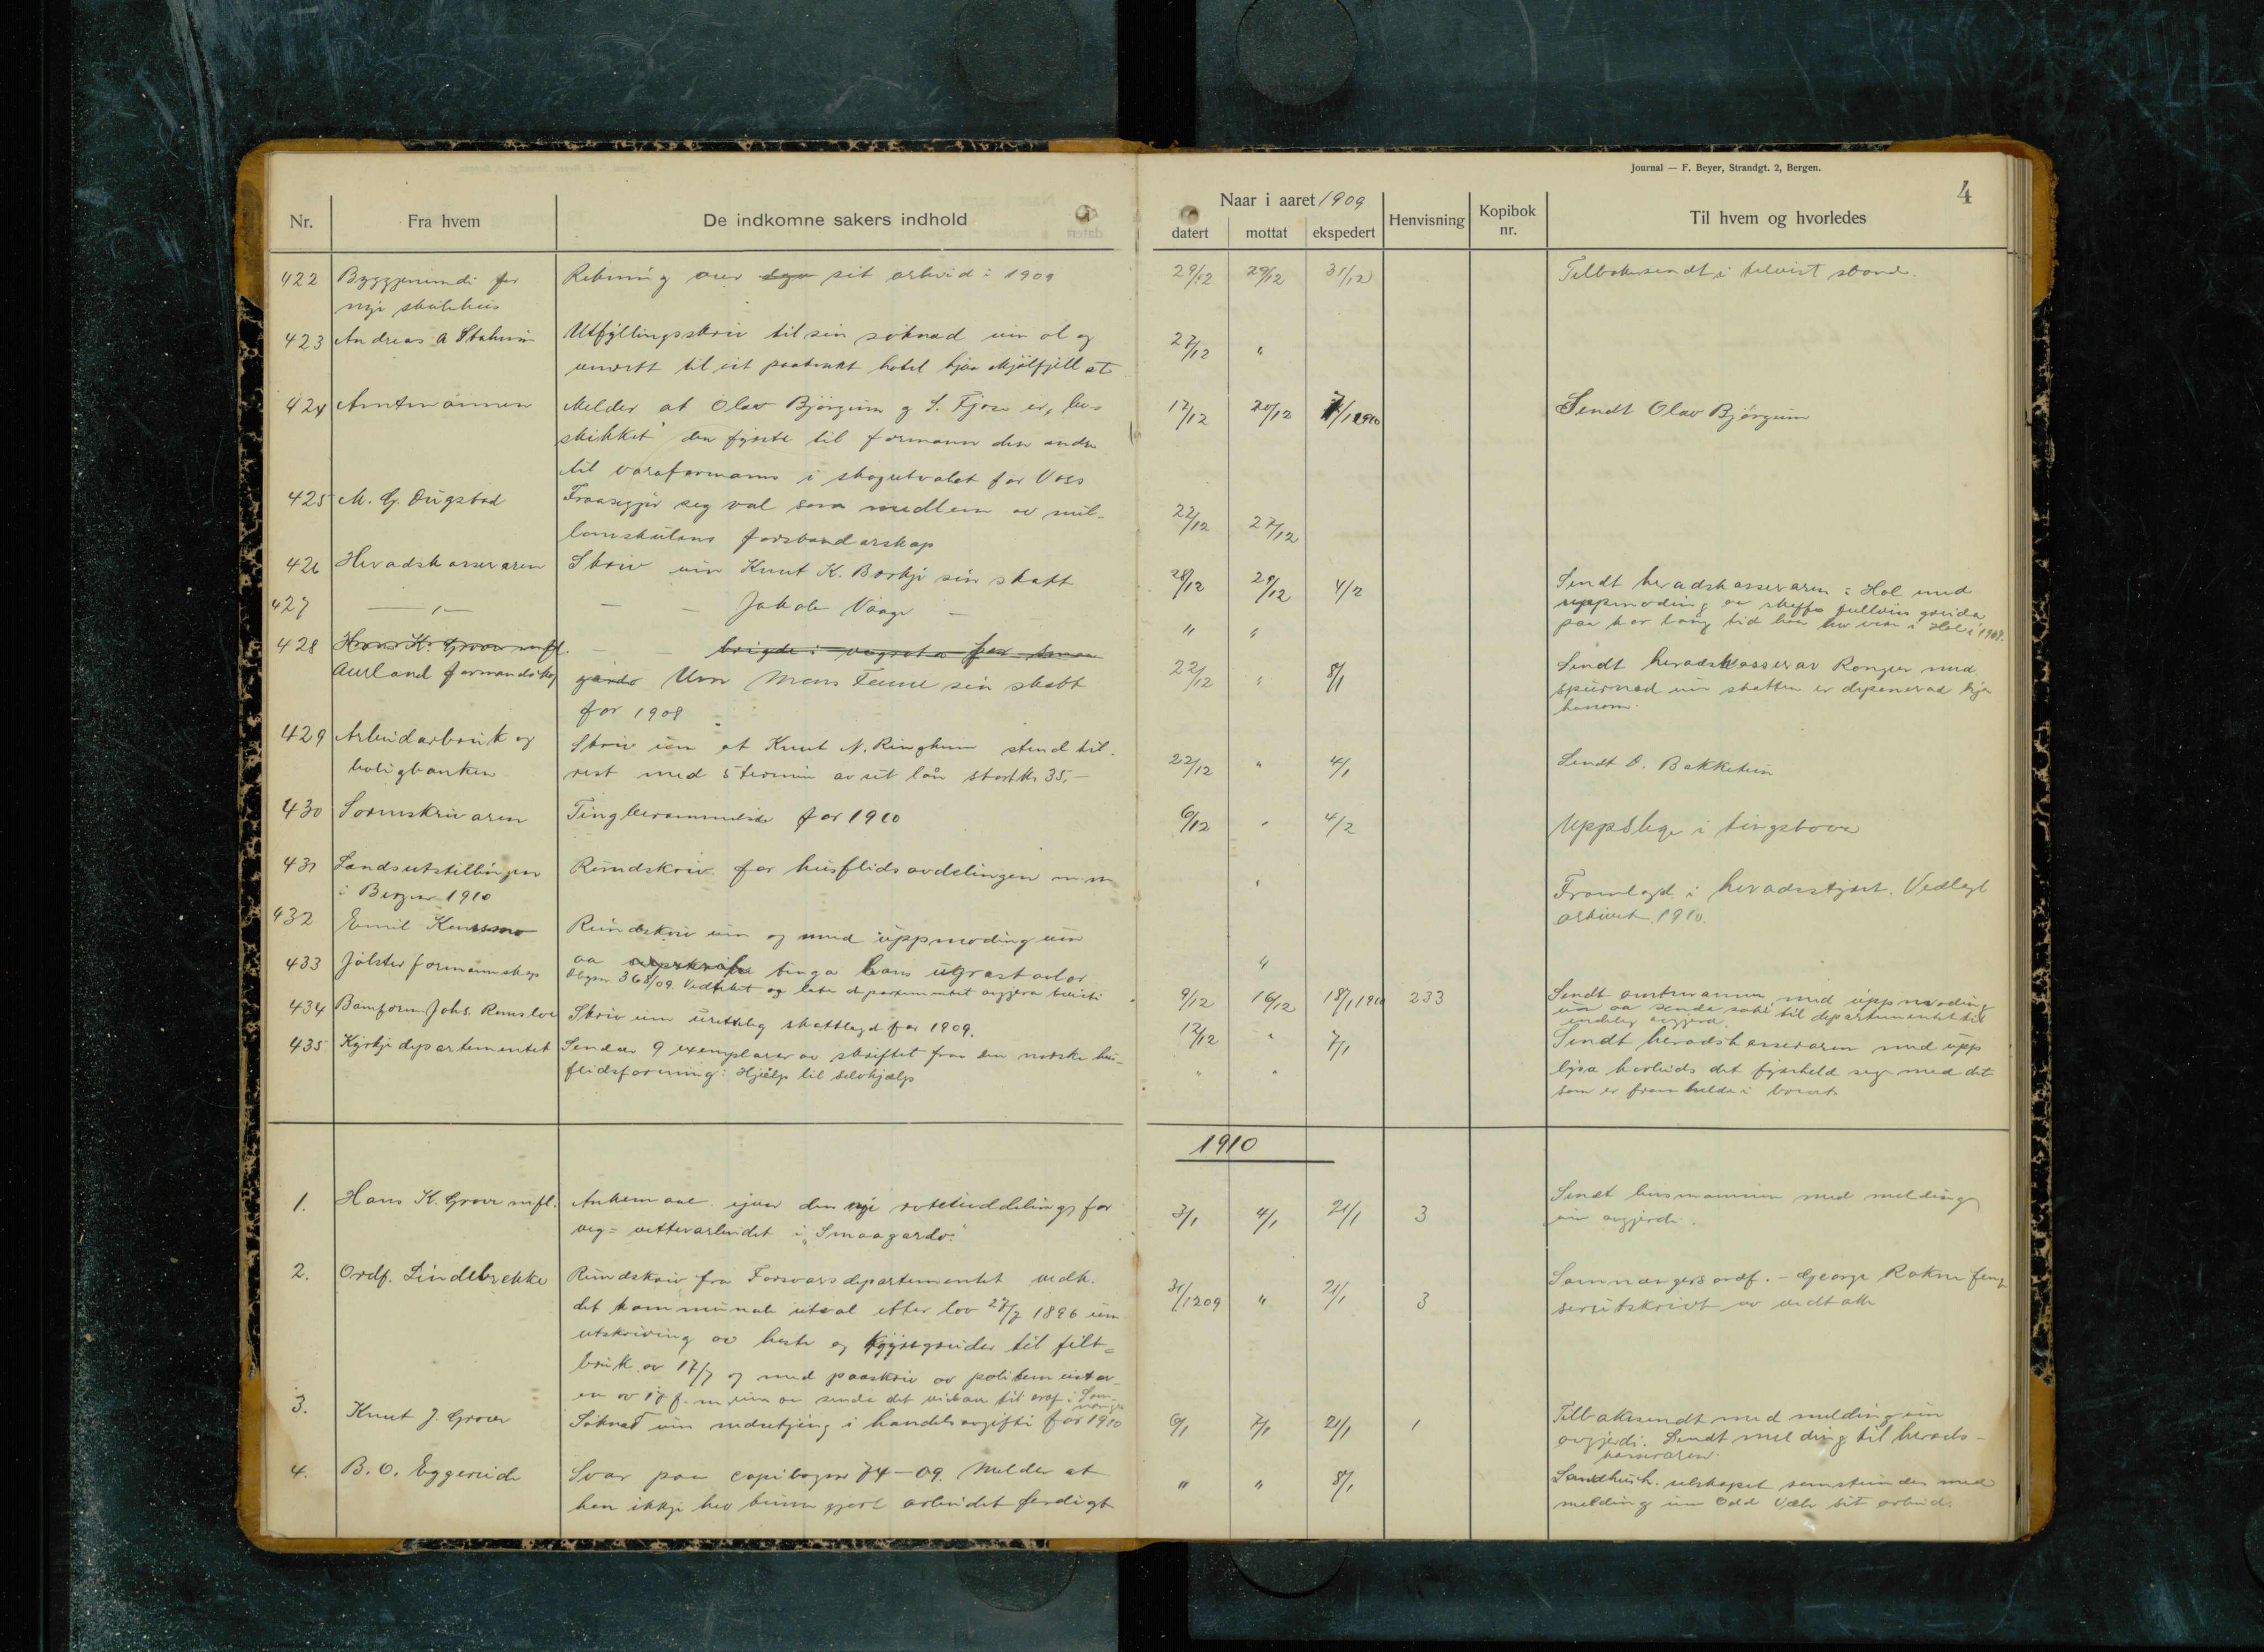 Journal — F. Beyer, Strandgt. 2, Bergen.
4
Nr.
Fra hvem
De indkomne sakers indhold
Naar i aaret 1909
datert
mottat
ekspedert
Henvisning
Kopibok nr.
Til hvem og hvorledes
422 Byggjenemdi for Rekning over sit arbeid i 1909 29/12 29/12 31/12 Tilbakesendt i tilvist stand.
nye skulehus
423 Andreas A Utfyllingsskriv til sin søknad um øl og 27/12 "
til eit paatenkt hotel hjaa Mjølfjell st
424 Amtmannen Melder at Olav Bjørgum og S. Fjose er, be- 17/12 20/12 7/1 1910 Sendt Olav Bjørgum
skikket den fyrste til formann den andre
til varaformann i skogutvalet for Voss
425 M. G. Dugstad Fraasegjer seg val som medlem av mil- 22/12 27/12
lomskulens forstandarskap
426 Heradskasseraren Skriv um Knut K. Børkje sin skatt 28/12 29/12 4/2 Sendt heradskasseraren i Hol med
uppmoding aa skaffa greida
427 — " — — — Jakob Vaage — " " paa kor lang tid han hev vore i Hol i 1908.
428 Hans K. Grove mfl. — — brigde i vegrota for Smaa
Aurland formandskap gardo Um Mons Tenne sin skatt 22/12 " 8/1 Sendt heradskasserar Ronger med
spurnad um skatten er deponerad hja
for 1908 honom.
429 Arbeidarbruk og Skriv um at Knut N. Ringheim stend til 22/12 " 4/1 Sendt O. Bakketun
boligbanken rest med 5 termin av sit lån stort kr 35,-
430 Sorenskrivaren Tingberammelse for 1910 6/12 " 4/2 Uppslege i tingstova
431 Landsutstillingen Rundskriv for husflidsavdelingen m m " Framlagd i heradsstyret. Vedlagt
i Bergen 1910 arkivet 1910.
432 Emil Rundskriv um og med uppmoding um
aa tinga hans "
433 Jølster formannskap 368/09. Vedteket og late departementet avgjera tvisti 9/12 16/12 18/1 1910 233 Sendt amtmannen med uppmoding
um aa senda saki til departementet til
endeleg avgjerd.
434 Johs. Remslo Skriv um urettleg skattlagd for 1909. 12/12 " 7/1 Sendt heradskasseraren med upp
435 Kyrkjedepartementet Sender 9 exemplarer av skriftet fraa den norske hus- " " lysa det fyreheld seg med det
flidsforening: Hjælp til selvhjælp som er framhelde i brevet.
1910
1. Hans K. Grove mfl. Ankemaal yver den nye roteinddeling for 3/1 4/1 21/1 3 Sendt lensmannen med melding
veg = vettervarbeidet i "Smaagardo." um avgjerdi.
2. Ordf. Lindebrekke Rundskriv fra Forsvarsdepartementet vedk. 31/12 09 " 21/1 3 Samnangers ordf. - George Rokne feng
det kommunale utval etter lov 27/7 1896 um serutskrift av vedtak
utskriving av heste og kjøyregreider til felt-
bruk av 17/7 og med paaskriv av politemeistar-
en av 18 f. m um aa senda det vidare til ordf i Sam-
nanger
3. Knut J. Grove Søknad um nedsetjing i handelsavgifti for 1910 6/1 7/1 21/1 1 Tilbakesendt med melding um
avgjerdi. Sendt melding til herads-
kasseraren.
4. B. O. Eggereide Svar paa copibognr 74 - 09. Melder at " " 8/1 Landhush. selskapet samstundes med
han ikkje hev gjort arbeidet ferdigt melding um Odd sit arbeid.